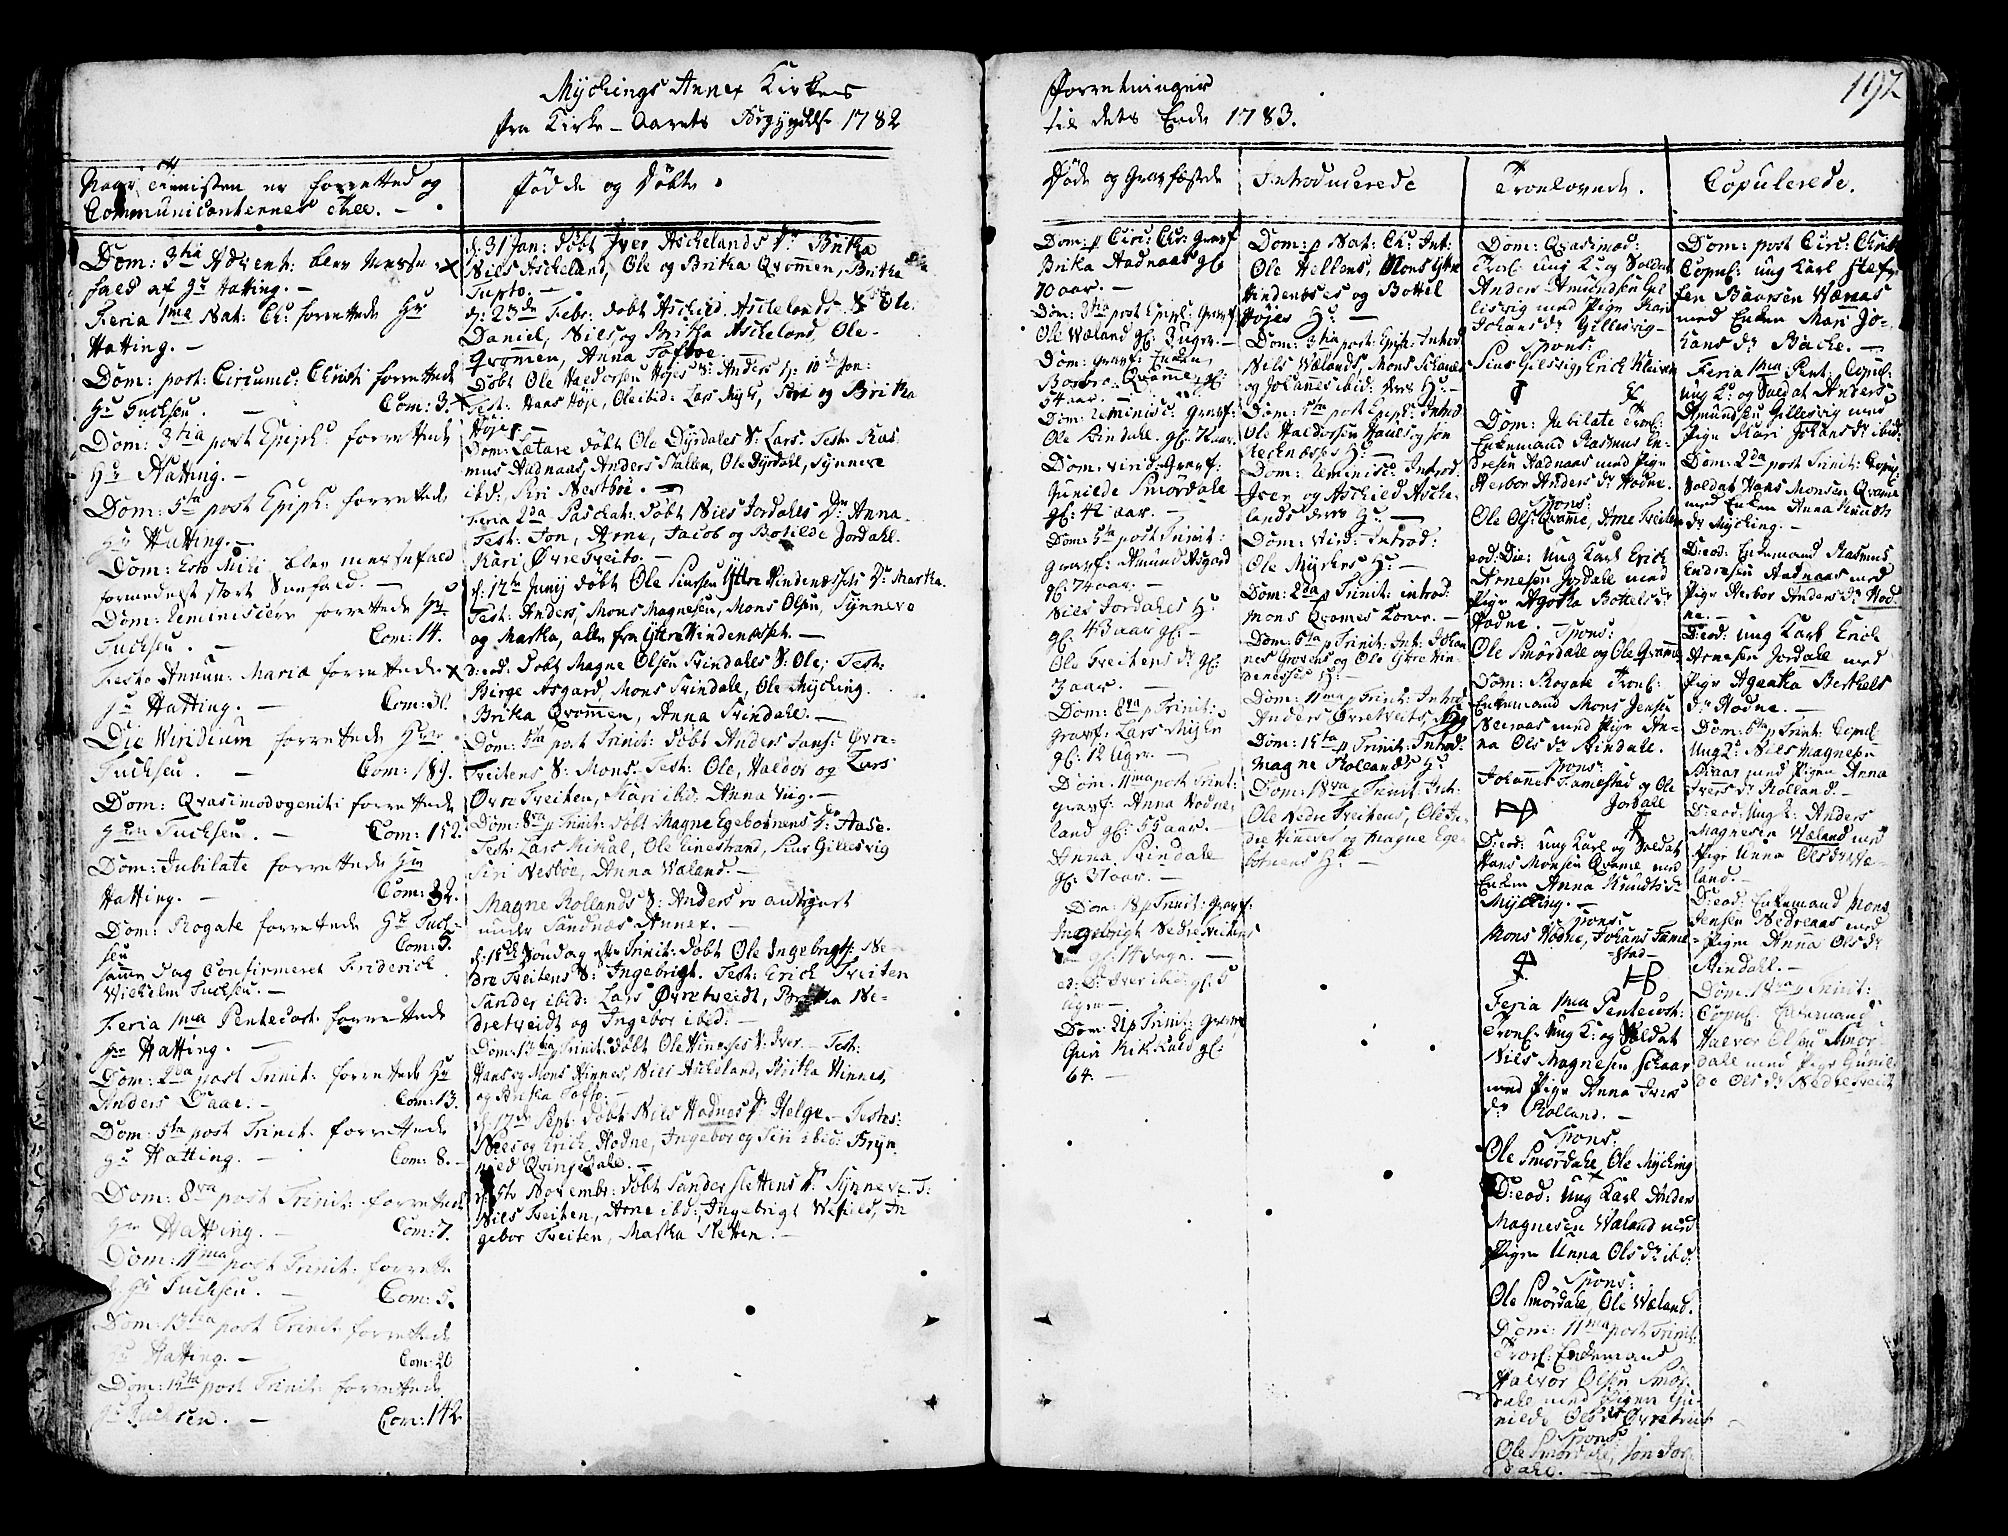 Myckings Annex Kirkes
fra Kirke-Aarets Begyndelse 1782
Forretninger
til dets Ende 1783.
192
Naar Tienisten er forretted og
Communicanternes
Dom: 3tia Advent: blev Messe-
fald af Hr Hatting. -
Feria 1ma Nat: Ch: forrettede Hr
Hatting. -
Dom: post: Circumc: Christi forrettede
Hr Tuchsen. - Com: 3.
Dom: 3tia post Epiph: forrettede
Hr Hatting. -
Dom: 5ta post Epiph: forrettede
Hr Hatting. -
Dom: Esto Mihi blev messefald
formedelst stort Sneefald. -
Dom: Reminiscere forrettede Hr
Tuchsen. - Com: 14.
Festo Annun: Mariæ forrettede
Hr Hatting. - Com:
Die Viridium forrettede Herr
Tuchsen. - Com: 189.
Dom: Qvasimodogeniti forrettede
Hr Tuchsen. - Com: 152.
Dom: Jubilate forrettede Hr
Hatting. - Com: 32.
Dom: Rogate forrettede Hr Tuch-
sen Com: 5.
samme Dag Confirmeret Friderich
Wilhelm Tuchsen. -
Feria 1ma Pentecost: forrettede
Hr Hatting. -
Dom: 2da post Trinit: forrettede Hr
Anders Daae. - Com: 13.
Dom: 5ta post Trinit: forrettede
Hr Hatting. - Com: 8.
Dom: 8va post Trinit: forrettede
Hr Hatting. - Com: 7.
Dom: 11ma post Trinit: forrette-
de Hr Tuchsen. - Com: 5.
Dom: 13tia post Trinit: forrettede
Hr Hatting. - Com: 20
Dom: 15ta post Trinit: forrettede
Hr Tuchsen. - Com: 142
Fødde og Døbte.
d: 31 Jan: døbt Iver Aschelands Dr Britha
Nils Ascheland, Ole og Britha Qvommen, Britha
Tufto. -
d: 23de Febr: døbt Aschild Aschelands S: Ole.
Daniel, Nils, og Britha Ascheland, Ole
Qvommen, Anna Toftoe.
Døbt Ole Haldorsen Høyes S: Anders d: 10de Jan:
Test: Hans Høje, Ole ibid: Lars Mykl, Siri og Britha
Høje. -
Dom: Lætare døbt Ole Dyrdales S: Lars. Test: Ras-
mus Aadnaas, Anders Stallen, Ole Dyrdahl, Synneve
ibd: Siri Nestbøe. -
Feria 2da Paschat: døbt Niels Jordales Dr Anna.
Test: Jon, Arne, Jacob og Botilde Jordahl.
Kari Øvretveito. -
d: 12te Junij døbt Ole Siursen Ytre Hindenæssets Dr Martha.
Test: Anders, Mons Magnesen, Mons Olsen, Synneve
og Martha, alle fra Ytre Hindenæsset. -
d: eod: døbt Magne Olsen Svindales S: Ole, Test:
Birge Asgard, Mons Svindale, Ole Mycking.
Britha Qvommen, Anna Svindale. -
Dom: 5ta post Trinit: døbt Anders Jans: Øvre-
Tveitens S: Mons. Test: Ole, Haldor og Lars
Øvre Tveiten, Kari ibd: Anna Viig. -
Dom: 8va p Trinit: døbt Magne Egebønens Dr Aase.
Test: Lars Mikal, Ole Einestrand, Siur Gillesvig
Siri Nesbøe, Anna Væland. -
Magne Rollands S: Anders er antegnet
under Sandnæs Annex. -
d: 15de Søndag efter Trinit: døbt Ole Ingebrigts: Ne-
dre Tveitens S: Ingebrigt. Test: Erich Tveiten
Sander ibid: Lars Øvretveidt, Britha Ne-
dretveidt og Ingebor ibid: -
Dom: 13tia p Trinit: døbt Ole Hinneses S: Iver. Test:
Hans og Mons Hinnes, Niels Ascheland, Britha Hinnes,
og Britha Tofto. -
d: 17de Sept: døbt Niels Hodnes Dr Helge. Testes:
Niels og Erich Hodne, Ingebor og Siri ibid: Bryn-
nild Qvingedale. -
Novembr: døbt Sander Slettens Dr Synneve. T:
Nils Tveiten, Arne ibd: Ingebrigt, In-
gebor Tveiten, Martha Sletten. -
Døde og Gravfæstede
Dom: p Circ: Chr: Gravf:
Britha Aadnaas gl:
70 aar. -
Dom: 3tia post Epiph: Gravf:
Ole Væland gl: 3 uger. -
Dom: gravf: Enken
Barbra Qvamme, gl:
54 aar. -
Dom: Reminisc: Gravf:
Ole Svindale gl: 76 aar.
Dom: virid: Gravf:
Gunilde Smørdale
gl: 42 aar. -
Dom: 5ta post Trinit:
gravf: Amund Asgard
gl: 74 aar. -
Niels Jordales Hu:
gl: 43 aar gl: -
Ole Tveitens Dr gl:
3 aar. -
Dom: 8va p Trinit:
gravf: Lars Mykle
gl: 12 Uger. -
Dom: 11ma post Trinit:
gravf: Anna Hodne-
land gl: 55 aar. -
Anna Svindale
gl: 31 aar. -
Dom: 18 p Trinit: gravf:
Ingebrigt Nedretveitens
Søn gl: 14 dage. -
eod: D: Iver ibid: gl: 5
Uger -
Dom: 21 p Trinit: gravf:
Guri Kikstad gl:
64. -
Introducerede
Dom: p Nat: Ch: Int:
Ole Hellens, Mons Ytre
Hindenæses og Bottel
Højes Hu: -
Dom: 3tia post: Epiph: Introd:
Nils Vælands, Mons
og Johannes ibid: deres Hu: -
Dom: 5ta post Epiph: Introd:
Ole Haldorsen
Hu: -
Dom: Reminisc: Introd:
Iver og Aschild Asche-
lands deres Hu: -
Dom: Virid: Introd:
Ole Myckens Hu: -
Dom: 2da p Trinit: introd:
Mons Qvames Kone. -
Dom: 6ta p Trinit: Int: Johan-
nes Grovens og Ole Ytre Hin-
denæsses Hu: -
Dom: 11ma p Trinit: Introd:
Anders Øvretveits Hu:
Dom: 15ta p Trinit: Introd:
Magne Rollands Hu:
Dom: 18va p Trinit: Int:
Ole Nedre Tveitens, Ole
Hinnes og Magne Ege-
bøtnens Hu:
Troelovede.
Dom: Qvasimod:
Troel: ung K: og Soldat
Anders Amundsen Gil-
lesvig med Pige Kari
Johans Dr Gillesvig -
Spons:
Siur Gilesvig, Erich Kleiven
Dom: Jubilate Troel:
Enkemand Rasmus En-
dresen Aadnaas med Pige
Herbor Anders Dr Hodne.
Spons:
Ole Ols: Qvame, Arne Tveiten
eod: Die: Ung Karl Erich
Arnesen Jordale med
Pige Agatha Bottels Dr
Hodne. - Spons:
Ole Smørdale og Ole Qvamme
Dom: Rogate Troel:
Enkemand Mons Jensen
Nernæs med Pige An-
na Ols Dr Svindale.
Spons:
Johannes Tamestad og Ole
Jordale
D: eod: Ung Karl og Soldat
Hans Monsen Qvame med
Enken Anna Knudts Dr
Mycking. -
Spons:
Mons Hodne, Johans Tame-
stad -
Feria 1ma Pentecost:
Troel: Ung K: og Soldat
Nils Magnesen Skaar
med Pige Anna Ivers
Dr Rolland. -
Spons:
Ole Smørdale, Ole Mycking
D: eod: Ung Karl Anders
Magnesen Væland med
Pige Anna Ols Dr ibd:
Spons:
Ole Smørdale, Ole Væland.
Dom: 11ma post Trinit:
Troel: Enkemand
Halvor Olsen Smør-
dale med Pigen Gu-
nilde Ols Dr Øvretveit
Spons:
Ole Smørdale, Jon Jor-
dale. -
Copulerede.
Dom: post Circ: Christ
Copul: ung Karl Stef-
fen Baarsen Vænas
med Enken Mari Jo-
hans Dr Backe. -
Feria 1ma Pent: Copul:
ung K: og Soldat Anders
Amundsen Gillesvig med
Pige Kari Johans Dr ibid:
Dom: 2da post Trinit: Copul:
Soldat Hans Monsen Qvame
med Enken Anna Knudts
Dr Mycking. -
D: eod: Enkemand Rasmus
Endresen Aadnaas med
Pige Herbor Anders Dr Hod-
ne. -
D: eod: Ung Karl Erich
Arnesen Jordale med
Pige Agaatha Berthels
Dr Hodne. -
Dom: 6ta p Trinit: Copul:
Ung K: Nils Magnesen
Skaar med Pigen Anna
Ivers Dr Rolland. -
D: eod: Ung K: Anders
Magnesen Væland med
Pige Anna Ols Dr Væ-
land. -
D: eod: Enkemand Mons
Jensen Nedreaas med
Pigen Anna Ols Dr
Svindahl. -
Dom: 18va p Trinit:
Copul: Enkemand
Halvor Olsen Smør-
dale med Pige Gunil-
de Ols Dr Nedretveit